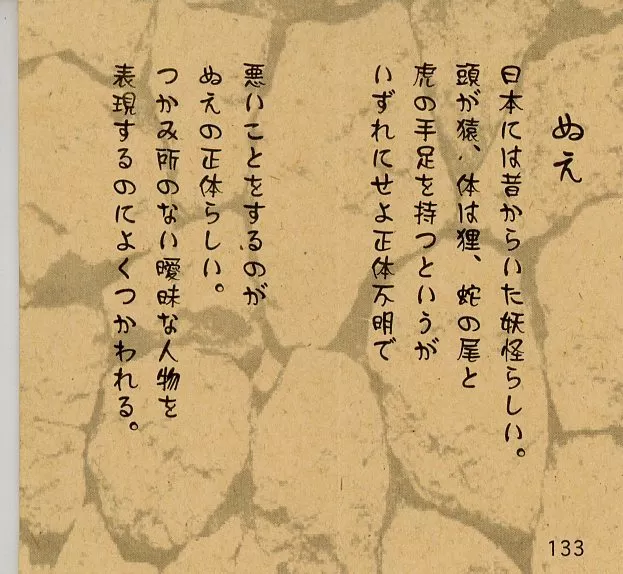 ぬえ
日本には昔からいた妖怪らしい。
頭が猿、体は狸、蛇の尾と
虎の手足を持つというが
いずれにせよ正体不明で
悪いことをするのが
ぬえの正体らしい。
つかみ所のない曖昧な人物を
表現するのによくつかわれる。
133